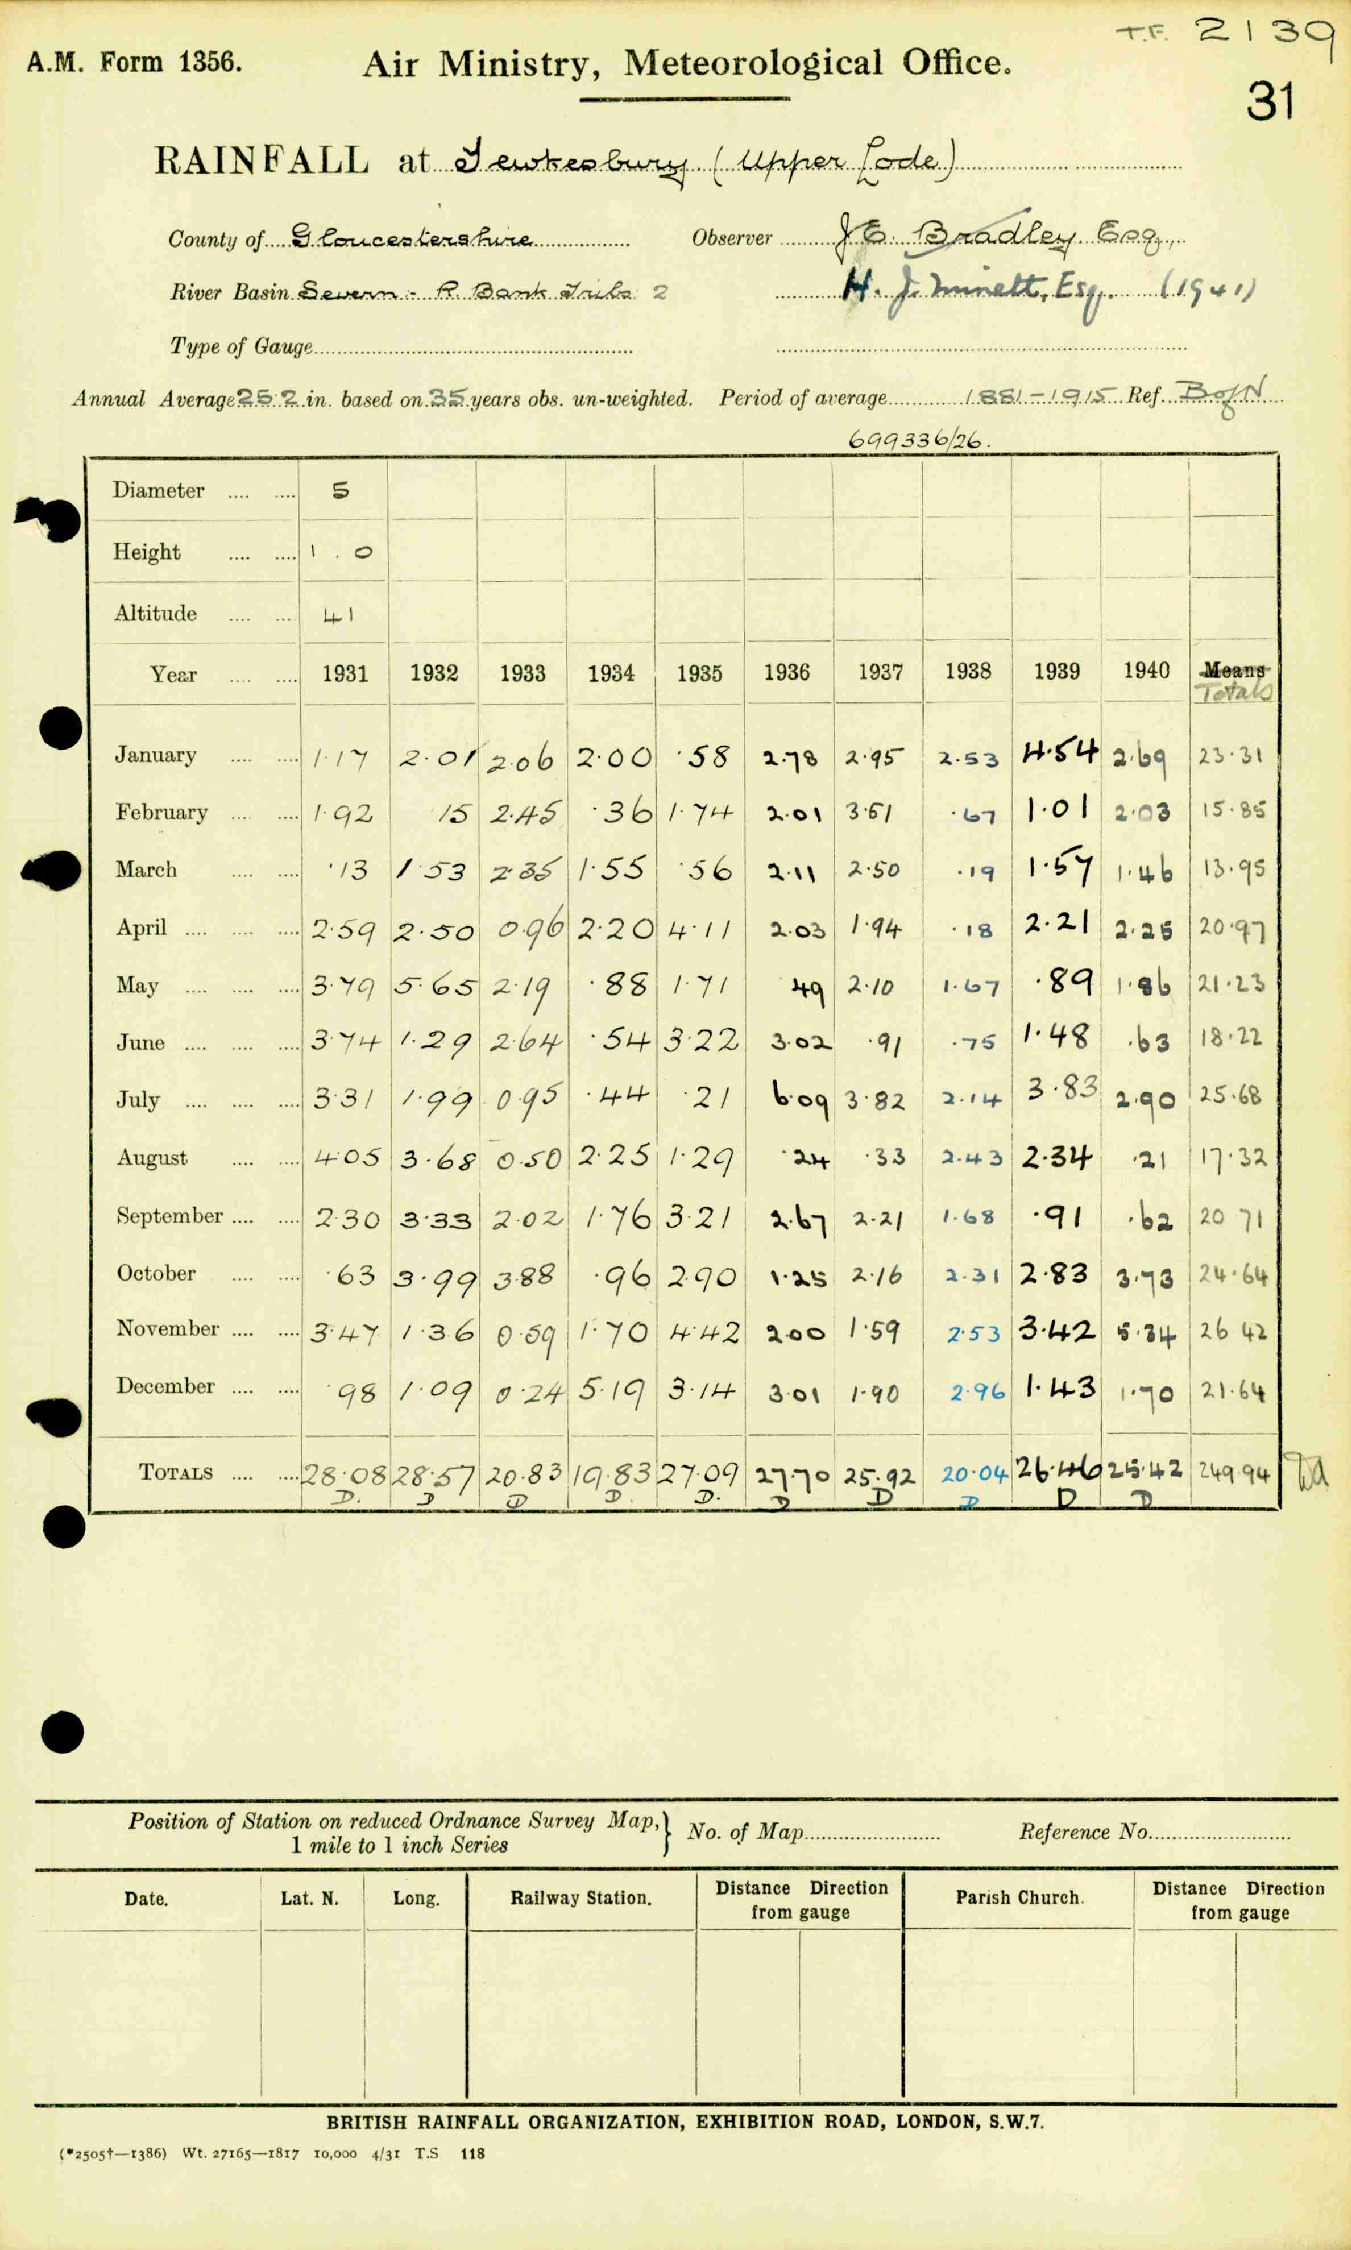 T.F. 2139
A.M. Form 1356. Air Ministry, Meteorological Office.
31
RAINFALL at Tewkesbury (Upper Lode)
County of Gloucestershire Observer J.E. Bradley Esq.,
River Basin Severn - R. Bank Tribs 2 H. J. Minett, Esq. (1941)
Type of Gauge
Annual Average 25.2 in. based on 35 years obs. un-weighted. Period of average 1881-1915 Ref. B of N
699336/26.
Diameter 5
Height 1.0
Altitude 41
Year 1931 1932 1933 1934 1935 1936 1937 1938 1939 1940 Means
Totals
January 1.17 2.01 2.06 2.00 .58 2.78 2.95 2.53 4.54 2.69 23.31
February 1.92 15 2.45 .36 1.74 2.01 3.51 .67 1.01 2.03 15.85
March .13 1.53 2.35 1.55 .56 2.11 2.50 .19 1.57 1.46 13.95
April 2.59 2.50 0.96 2.20 4.11 2.03 1.94 .18 2.21 2.25 20.97
May 3.79 5.65 2.19 .88 1.71 49 2.10 1.67 .89 1.86 21.23
June 3.74 1.29 2.64 .54 3.22 3.02 .91 .75 1.48 .63 18.22
July 3.31 1.99 0.95 .44 .21 6.09 3.82 2.14 3.83 2.90 25.68
August 4.05 3.68 0.50 2.25 1.29 .24 .33 2.43 2.34 .21 17.32
September 2.30 3.33 2.02 1.76 3.21 2.67 2.21 1.68 .91 .62 20 71
October .63 3.99 3.88 .96 2.90 1.25 2.16 2.31 2.83 3.73 24.64
November 3.47 1.36 0.59 1.70 4.42 2.00 1.59 2.53 3.42 5.34 26 42
December .98 1.09 0.24 5.19 3.14 3.01 1.90 2.96 1.43 1.70 21.64
TOTALS 28.08 28.57 20.83 19.83 27.09 27.70 25.92 20.04 26.46 25.42 249.94
D. D D D. D. D D D D D
Position of Station on reduced Ordnance Survey Map, } No. of Map Reference No.
1 mile to 1 inch Series
Date. Lat. N. Long. Railway Station. Distance Direction from gauge Parish Church. Distance Direction from gauge
BRITISH RAINFALL ORGANIZATION, EXHIBITION ROAD, LONDON, S.W.7.
(*2505†—1386) Wt. 27165—1817 10,000 4/31 T.S 118